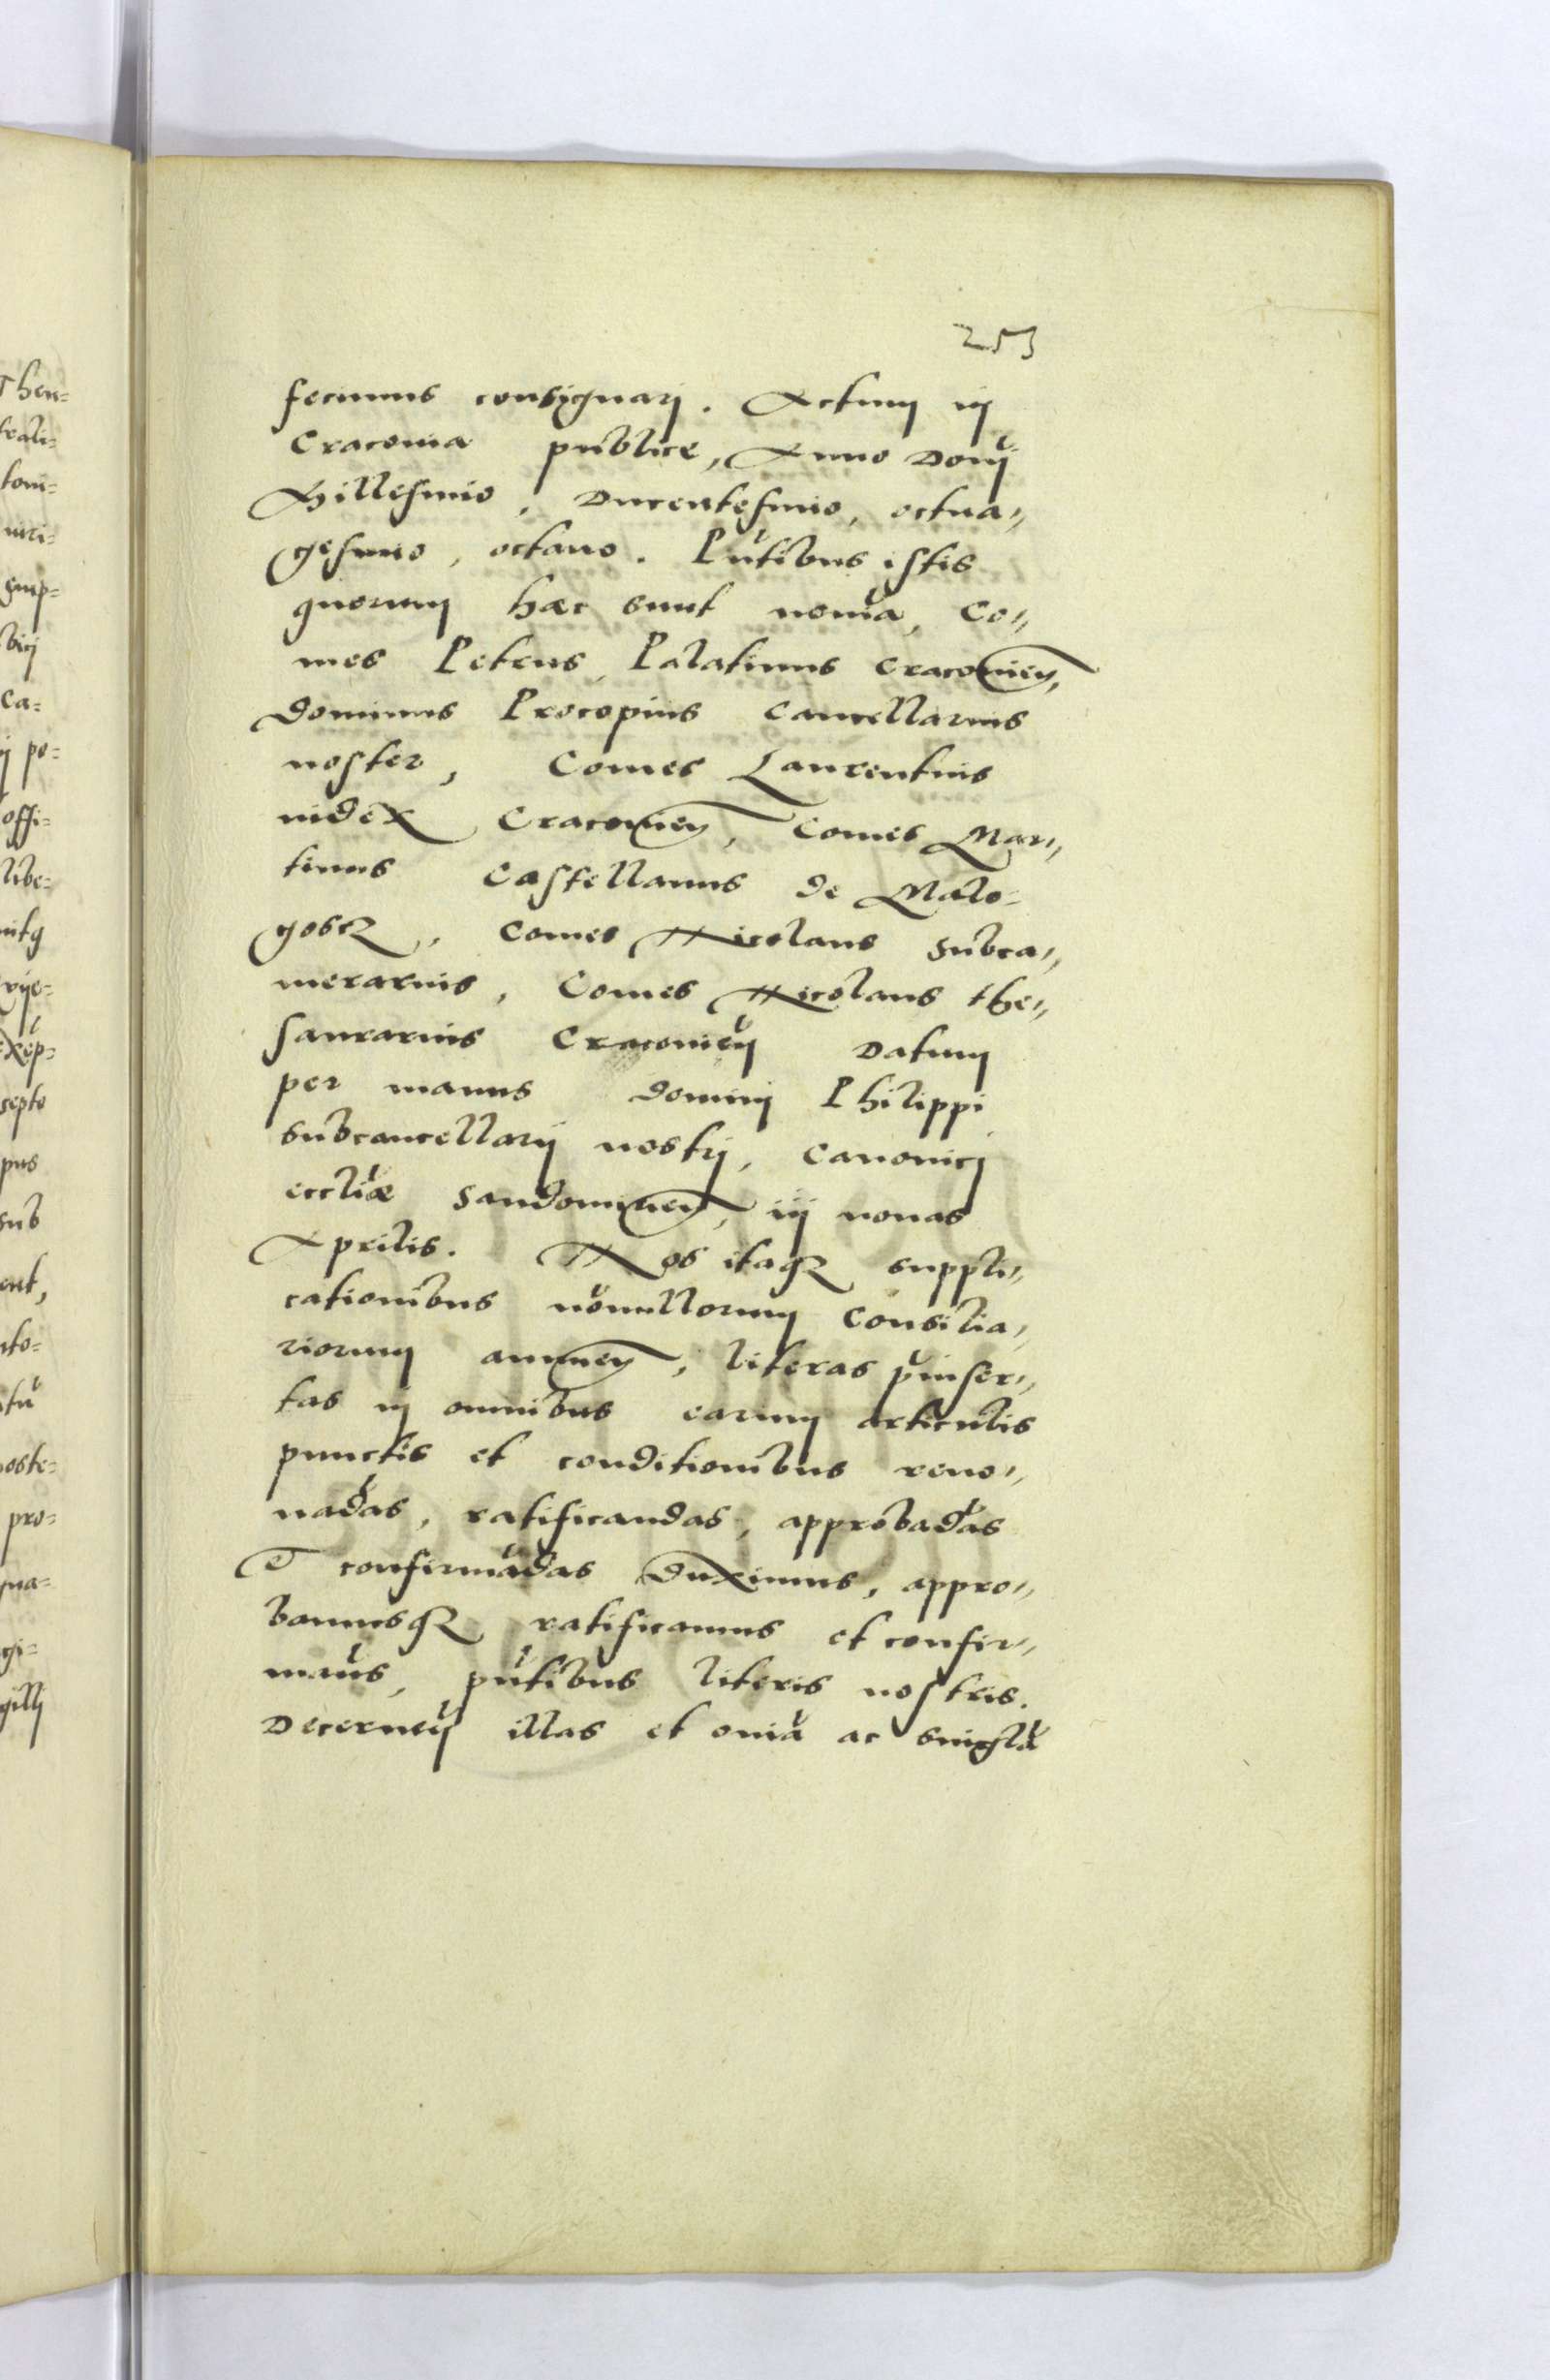 253
fecimus consignarj. Actum in
Cracovia publice, Anno Donj
Millesimo, Ducentesimo, octua„
gesimo, octavo. Pntibus istis
quorum haec sunt noma, Co„
mes Petrus, Palatinus Cracovien,
dominus Procopius Cancellarius
noster, Comes Laurentius
iudex Cracovien, Comes Mar„
tinus Castellanus de Malo=
goscz, Comes Nicolaus Subca„
merarius, Comes Nicolaus the„
saurarius Cracovien Datum
per manus dominj Philippi
subcancellarij nostrj, Canonicj
eccliae Sandomirien, iij nonas
Aprilis. Nos itaq suppli„
cationibus nonullorum Consilia„
riorum annuen, literas pinser„
tas in omnibus earum articulis
punctis et conditionibus reno„
vadas, ratificandas, approbadas
et confirmadas duximus, appro„
bamusq ratificamus et confir„
maus, pntibus literis nostris.
Decernen illas et omia ac singla
Then=
trali=
tom=
nici=
ca=
j po=
offi=
libe=
exep=
septo
pus
sub
ent,
nto=
oste=
pro=
gi=
gillj